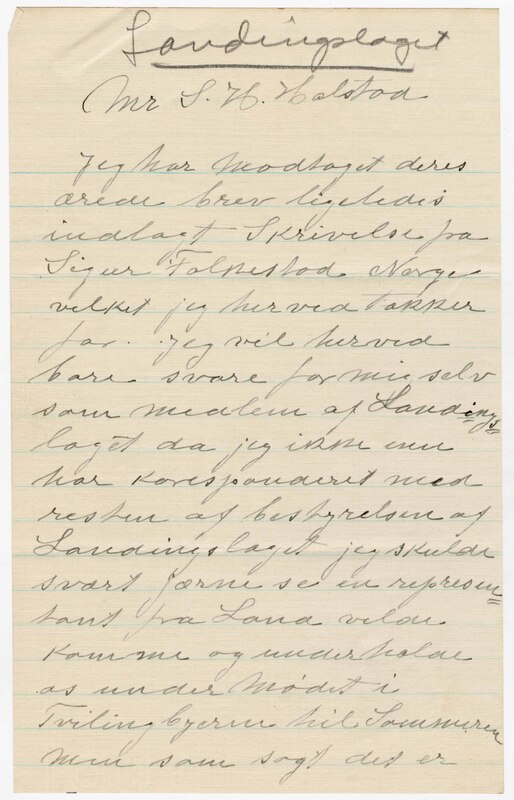 Landingslaget
Mr S. H. Halstad
Jeg har modtaget deres
ærede brev ligeledis
indlagt Skrivelse fra
Sigur Falkestad Norge
vilket jeg herved takker
for. Jeg vil herved
bare svare for mig selv
som medlem af Landings=
laget da jeg ikke enu
har korresponderet med
resten af bestyrelsen af
Landingslaget jeg skulde
svært gjærne se en represen=
tant fra Land vilde
komme og underholde
os under Mødet i
Tvilingbyerne til Sommeren
men som sagt det er